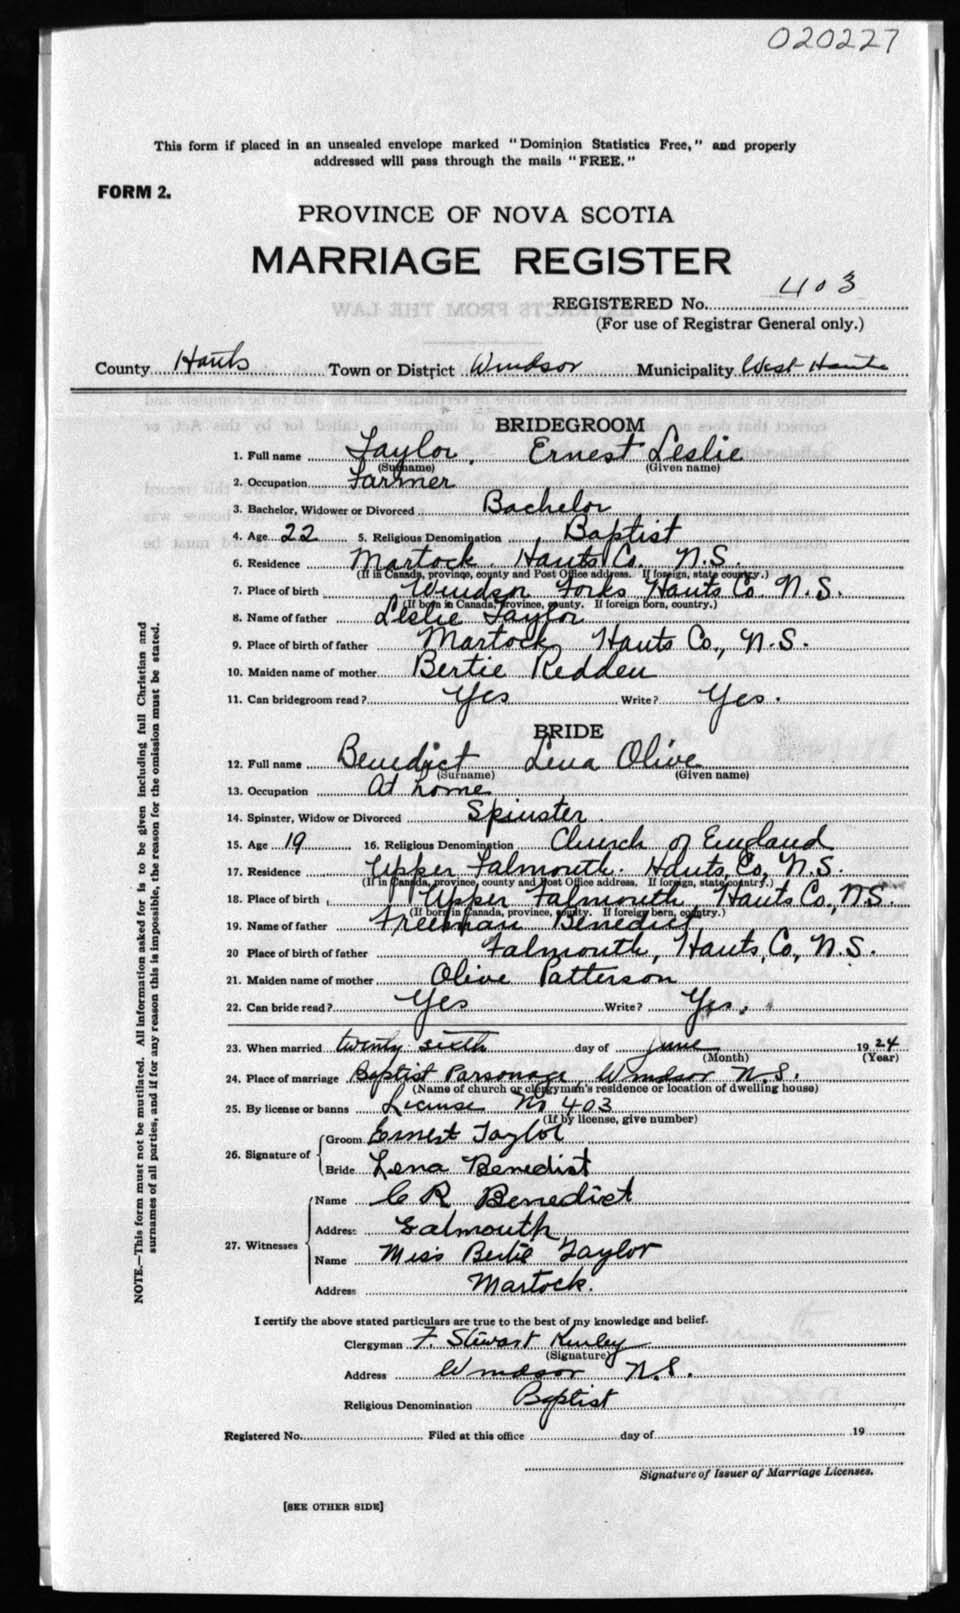 020227
This form if placed in an unsealed envelope marked "Dominion Statistics Free," and properly
addressed will pass through the mails "FREE."
FORM 2.
PROVINCE OF NOVA SCOTIA
MARRIAGE REGISTER
REGISTERED No. 403
(For use of Registrar General only.)
County Hants Town or District Windsor Municipality West Hants
BRIDEGROOM
1. Full name Taylor, Ernest Leslie
(Surname) (Given name)
2. Occupation Farmer
3. Bachelor, Widower or Divorced Bachelor
4. Age 22 5. Religious Denomination Baptist
6. Residence Martock, Hants Co. N.S.
(If in Canada, province, county and Post Office address. If foreign, state country.)
7. Place of birth Windsor Forks Hants Co. N.S.
(If born in Canada, province, county. If foreign born, country.)
8. Name of father Leslie Taylor
9. Place of birth of father Martock, Hants Co., N.S.
10. Maiden name of mother Bertie Redden
11. Can bridegroom read? Yes Write? Yes.
BRIDE
12. Full name Benedict Lena Olive
(Surname) (Given name)
13. Occupation At home
14. Spinster, Widow or Divorced Spinster.
15. Age 19 16. Religious Denomination Church of England
17. Residence Upper Falmouth. Hants, Co, N.S.
(If in Canada, province, county and Post Office address. If foreign, state country.)
18. Place of birth Upper Falmouth, Hants Co., N.S.
(If born in Canada, province, county. If foreign born, country.)
19. Name of father Freeman Benedict
20 Place of birth of father Falmouth, Hants, Co, N.S.
21. Maiden name of mother Olive Patterson
22. Can bride read? Yes Write? Yes.
23. When married twenty sixth day of June 1924
(Month) (Year)
24. Place of marriage Baptist Parsonage, Windsor N.S.
(Name of church or clergyman's residence or location of dwelling house)
25. By license or banns License No 403
(If by license, give number)
26. Signature of Groom Ernest Taylor
Bride Lena Benedict
27. Witnesses Name C R Benedict
Address Falmouth
Name Miss Bertie Taylor
Address Martock.
I certify the above stated particulars are true to the best of my knowledge and belief.
Clergyman F. Stewart
(Signature)
Address Windsor N.S.
Religious Denomination Baptist
Registered No. Filed at this office day of 19
Signature of Issuer of Marriage Licenses.
[SEE OTHER SIDE]
NOTE.—This form must not be mutilated. All information asked for is to be given including full Christian and
surnames of all parties, and if for any reason this is impossible, the reason for the omission must be stated.